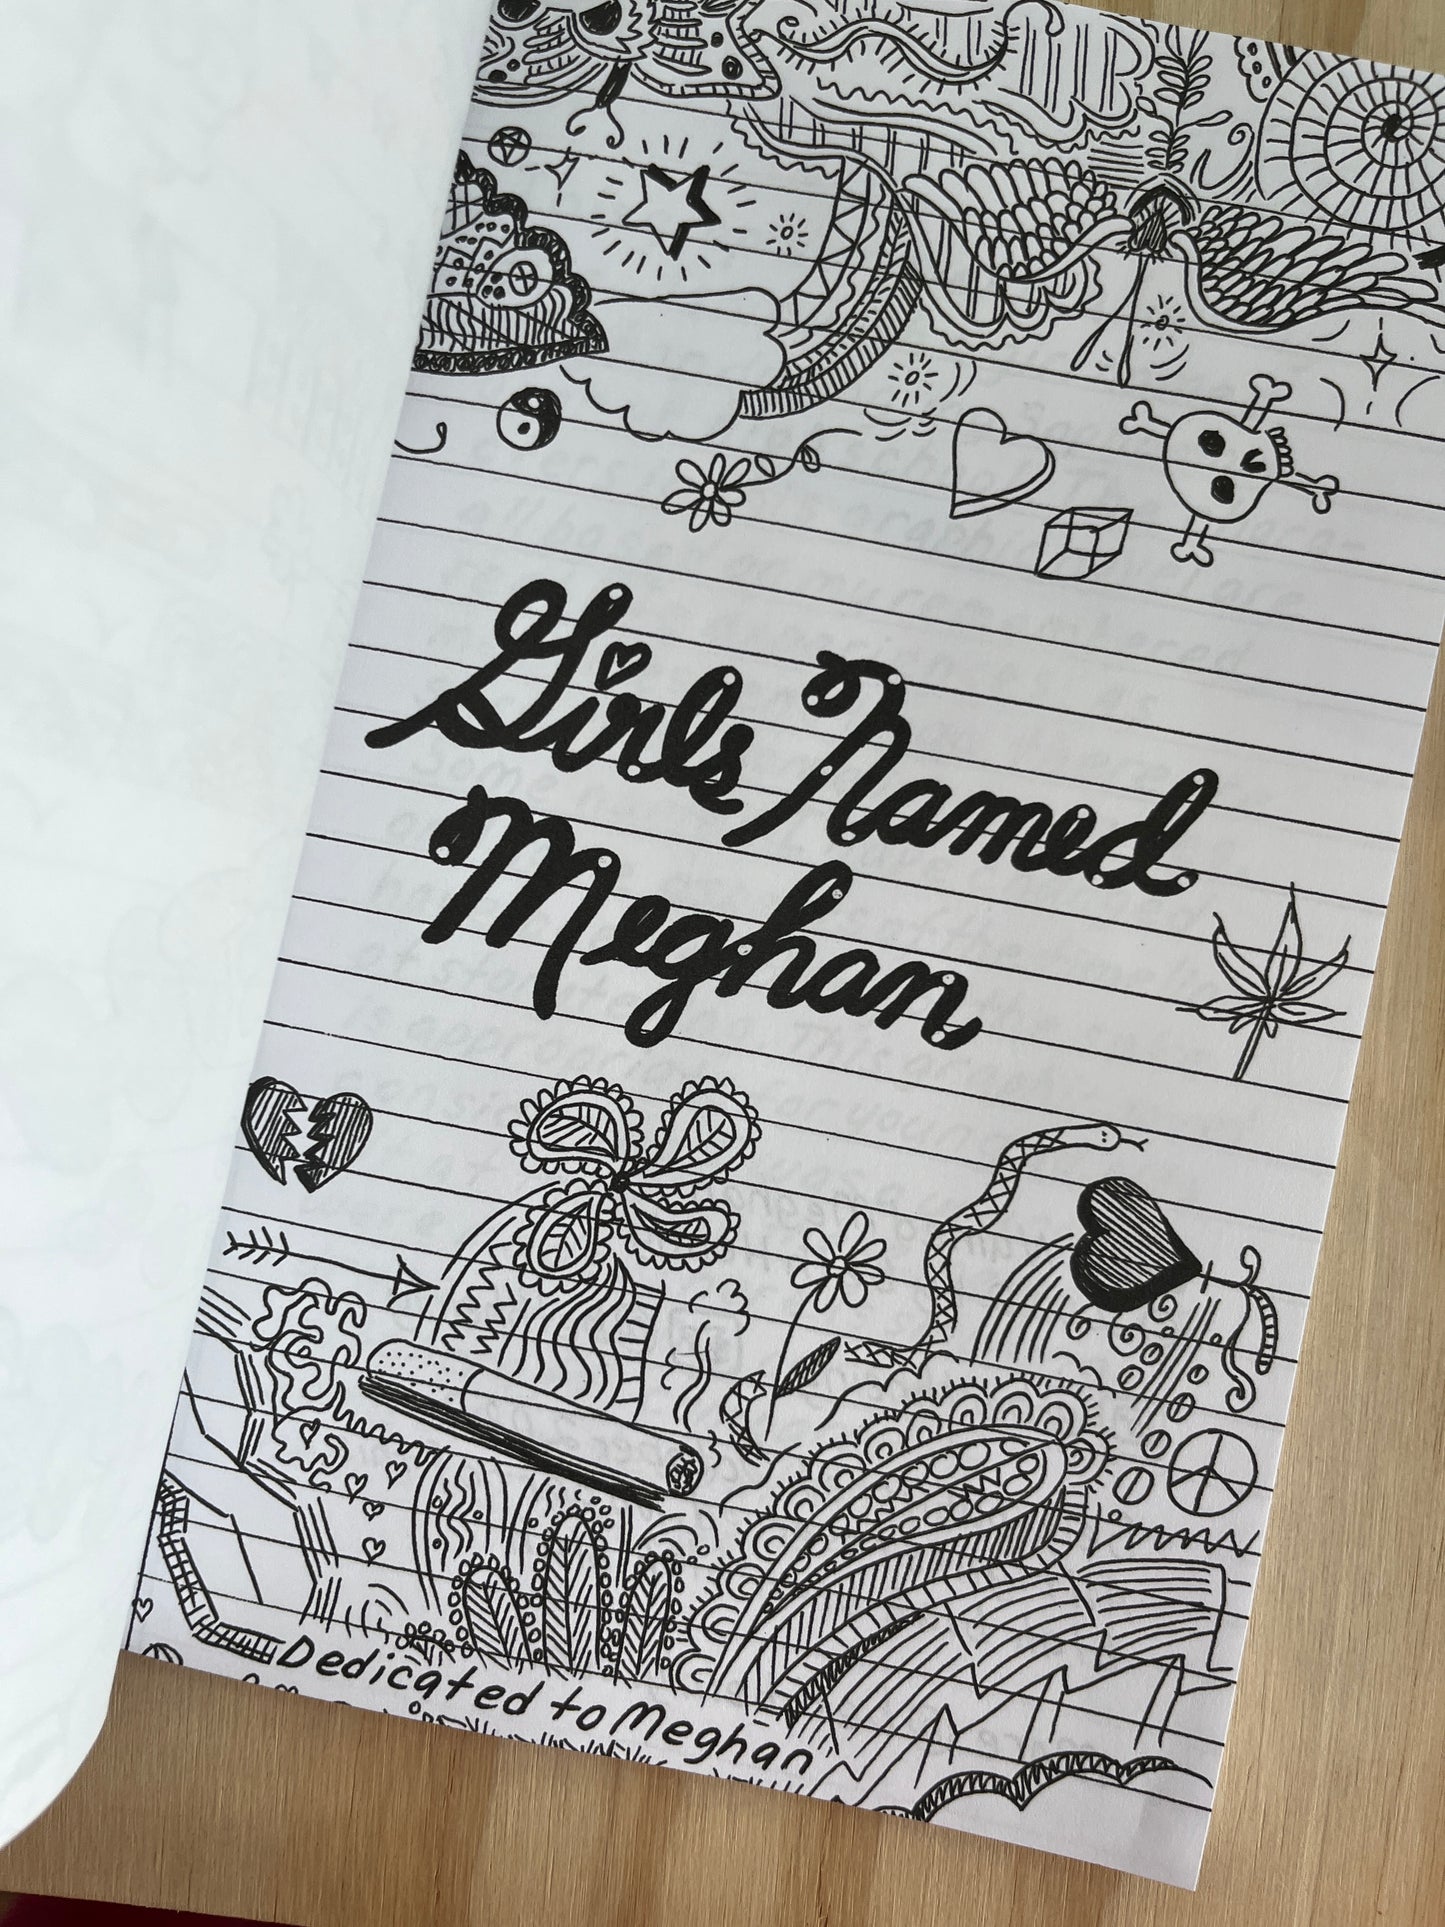 Girls Named
Meghan
Dedicated to Meghan